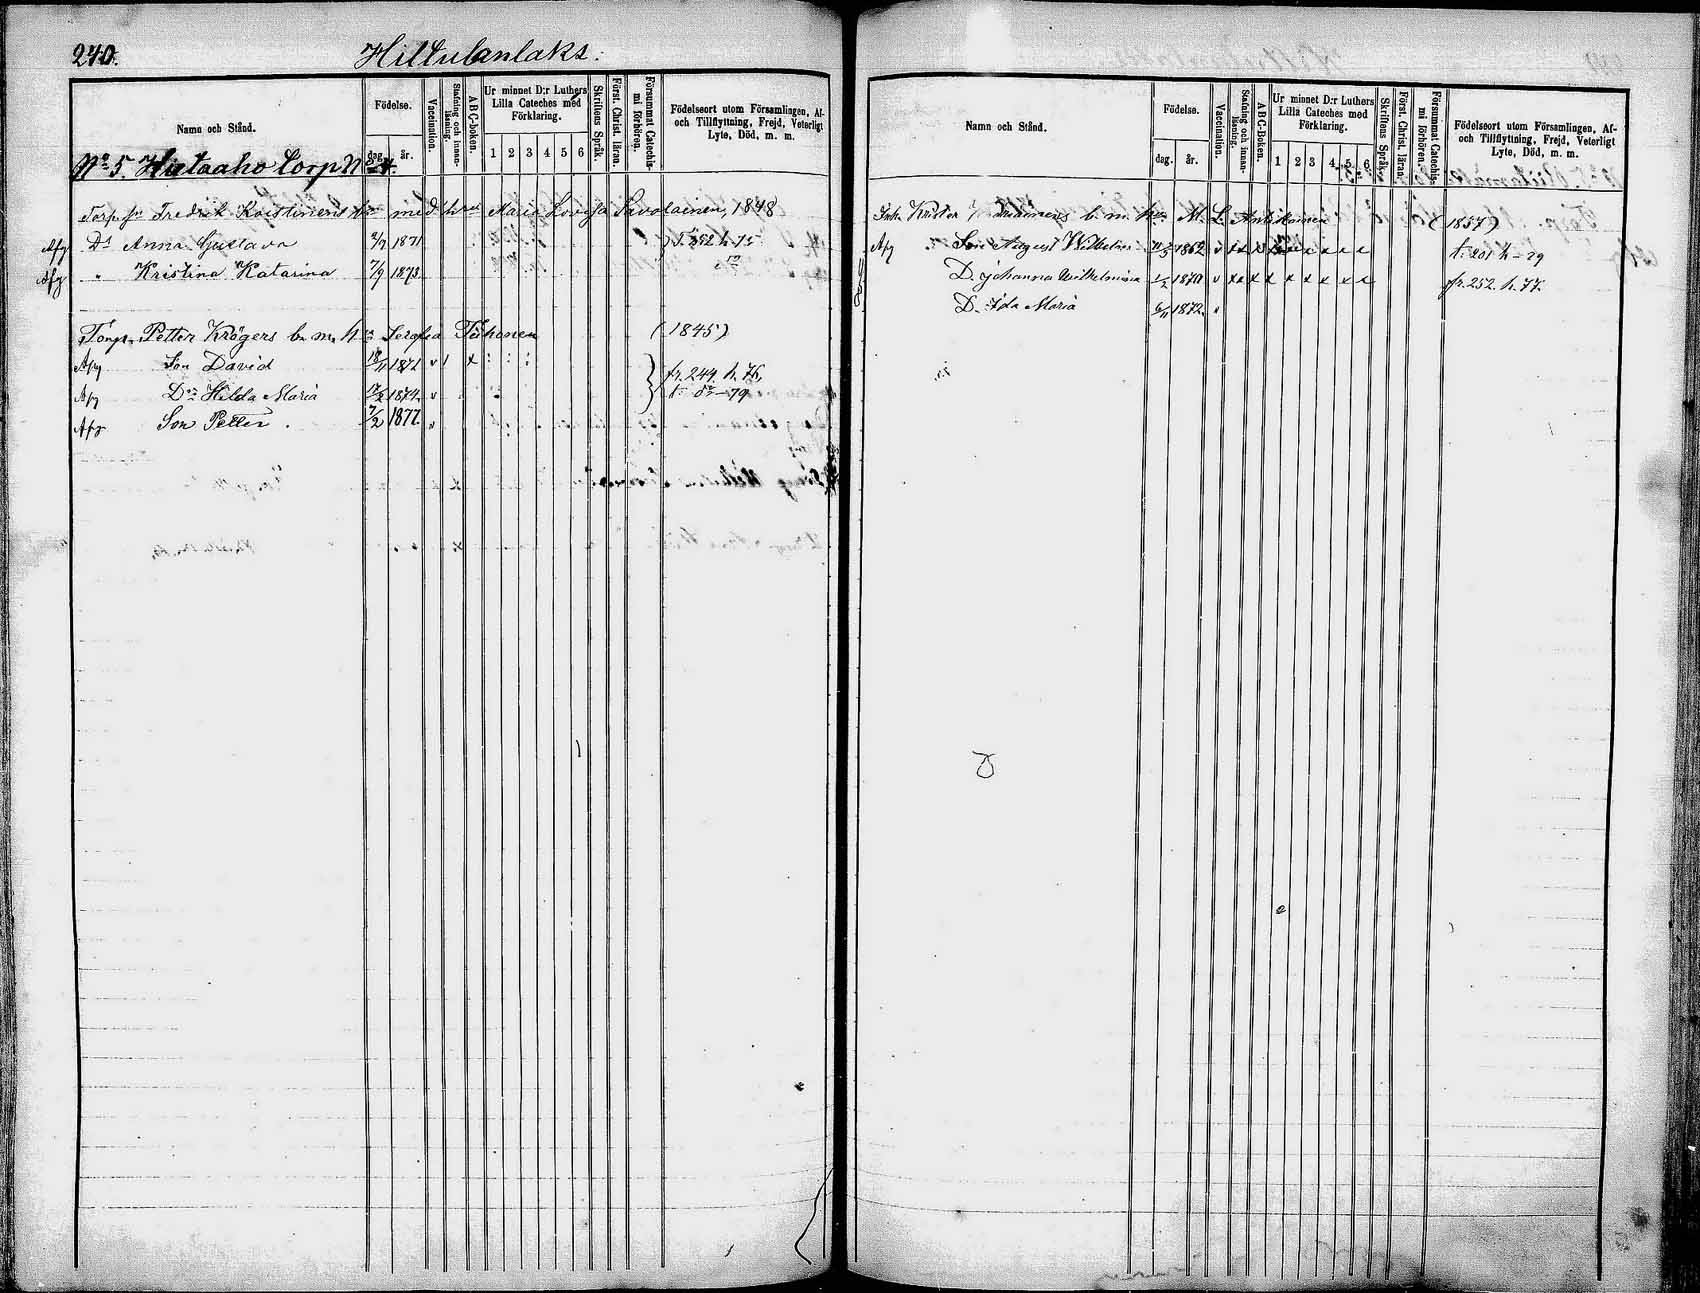 240.
Hiltulanlaks.
Namn och Stånd.
Födelse.
dag.
år.
Vaccination.
Stafning och innan-läsning.
ABC-boken.
Ur minnet D:r Luthers Lilla Cateches med Förklaring.
1 2 3 4 5 6
Skriftens Språk.
Först. Christ. läran.
Försummat Catechismi förhören.
Födelseort utom Församlingen, Af- och Tillflyttning, Frejd, Veterligt Lyte, Död, m. m.
No 5. Hietaaho torp No 4.
Torp. Fredrik Koistinens med hru Maria Lovisa Savolainen, 1848
Afg Dr Anna Gustava 1871 252 h. 75
Afg " Kristina Katarina 7/9 1873 do
Torp. Petter Krögers b. m. h Serafia (1845)
Afg Son David 18/11 1871 v
Afg Dr Hilda Maria 17/2 1874 v fr. 249 h. 76,
Afg Son Petter. 7/2 1877 t. do 79
Namn och Stånd.
Födelse.
dag.
år.
Vaccination.
Stafning och innan-läsning.
ABC-Boken.
Ur minnet D:r Luthers Lilla Cateches med Förklaring.
1 2 3 4 5 6
Skriftens Språk.
Först. Christ. lärna.
Försummat Catechismi förhören.
Födelseort utom Församlingen, Af- och Tillflyttning, Frejd, Veterligt Lyte, Död, m. m.
Inh. Krister b. m. M. L. Antikainen (1857)
Afg Son August Wilhelm 1862 v x x x x x x x x t. 201 h - 79
D. Johanna Wilhelmina 1/2 1870 v x x x x x x x x x fr. 252. h. 77.
D. Ida Maria 6/11 1872